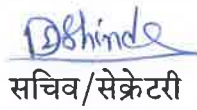 DShinde
सचिव/सेक्रेटरी